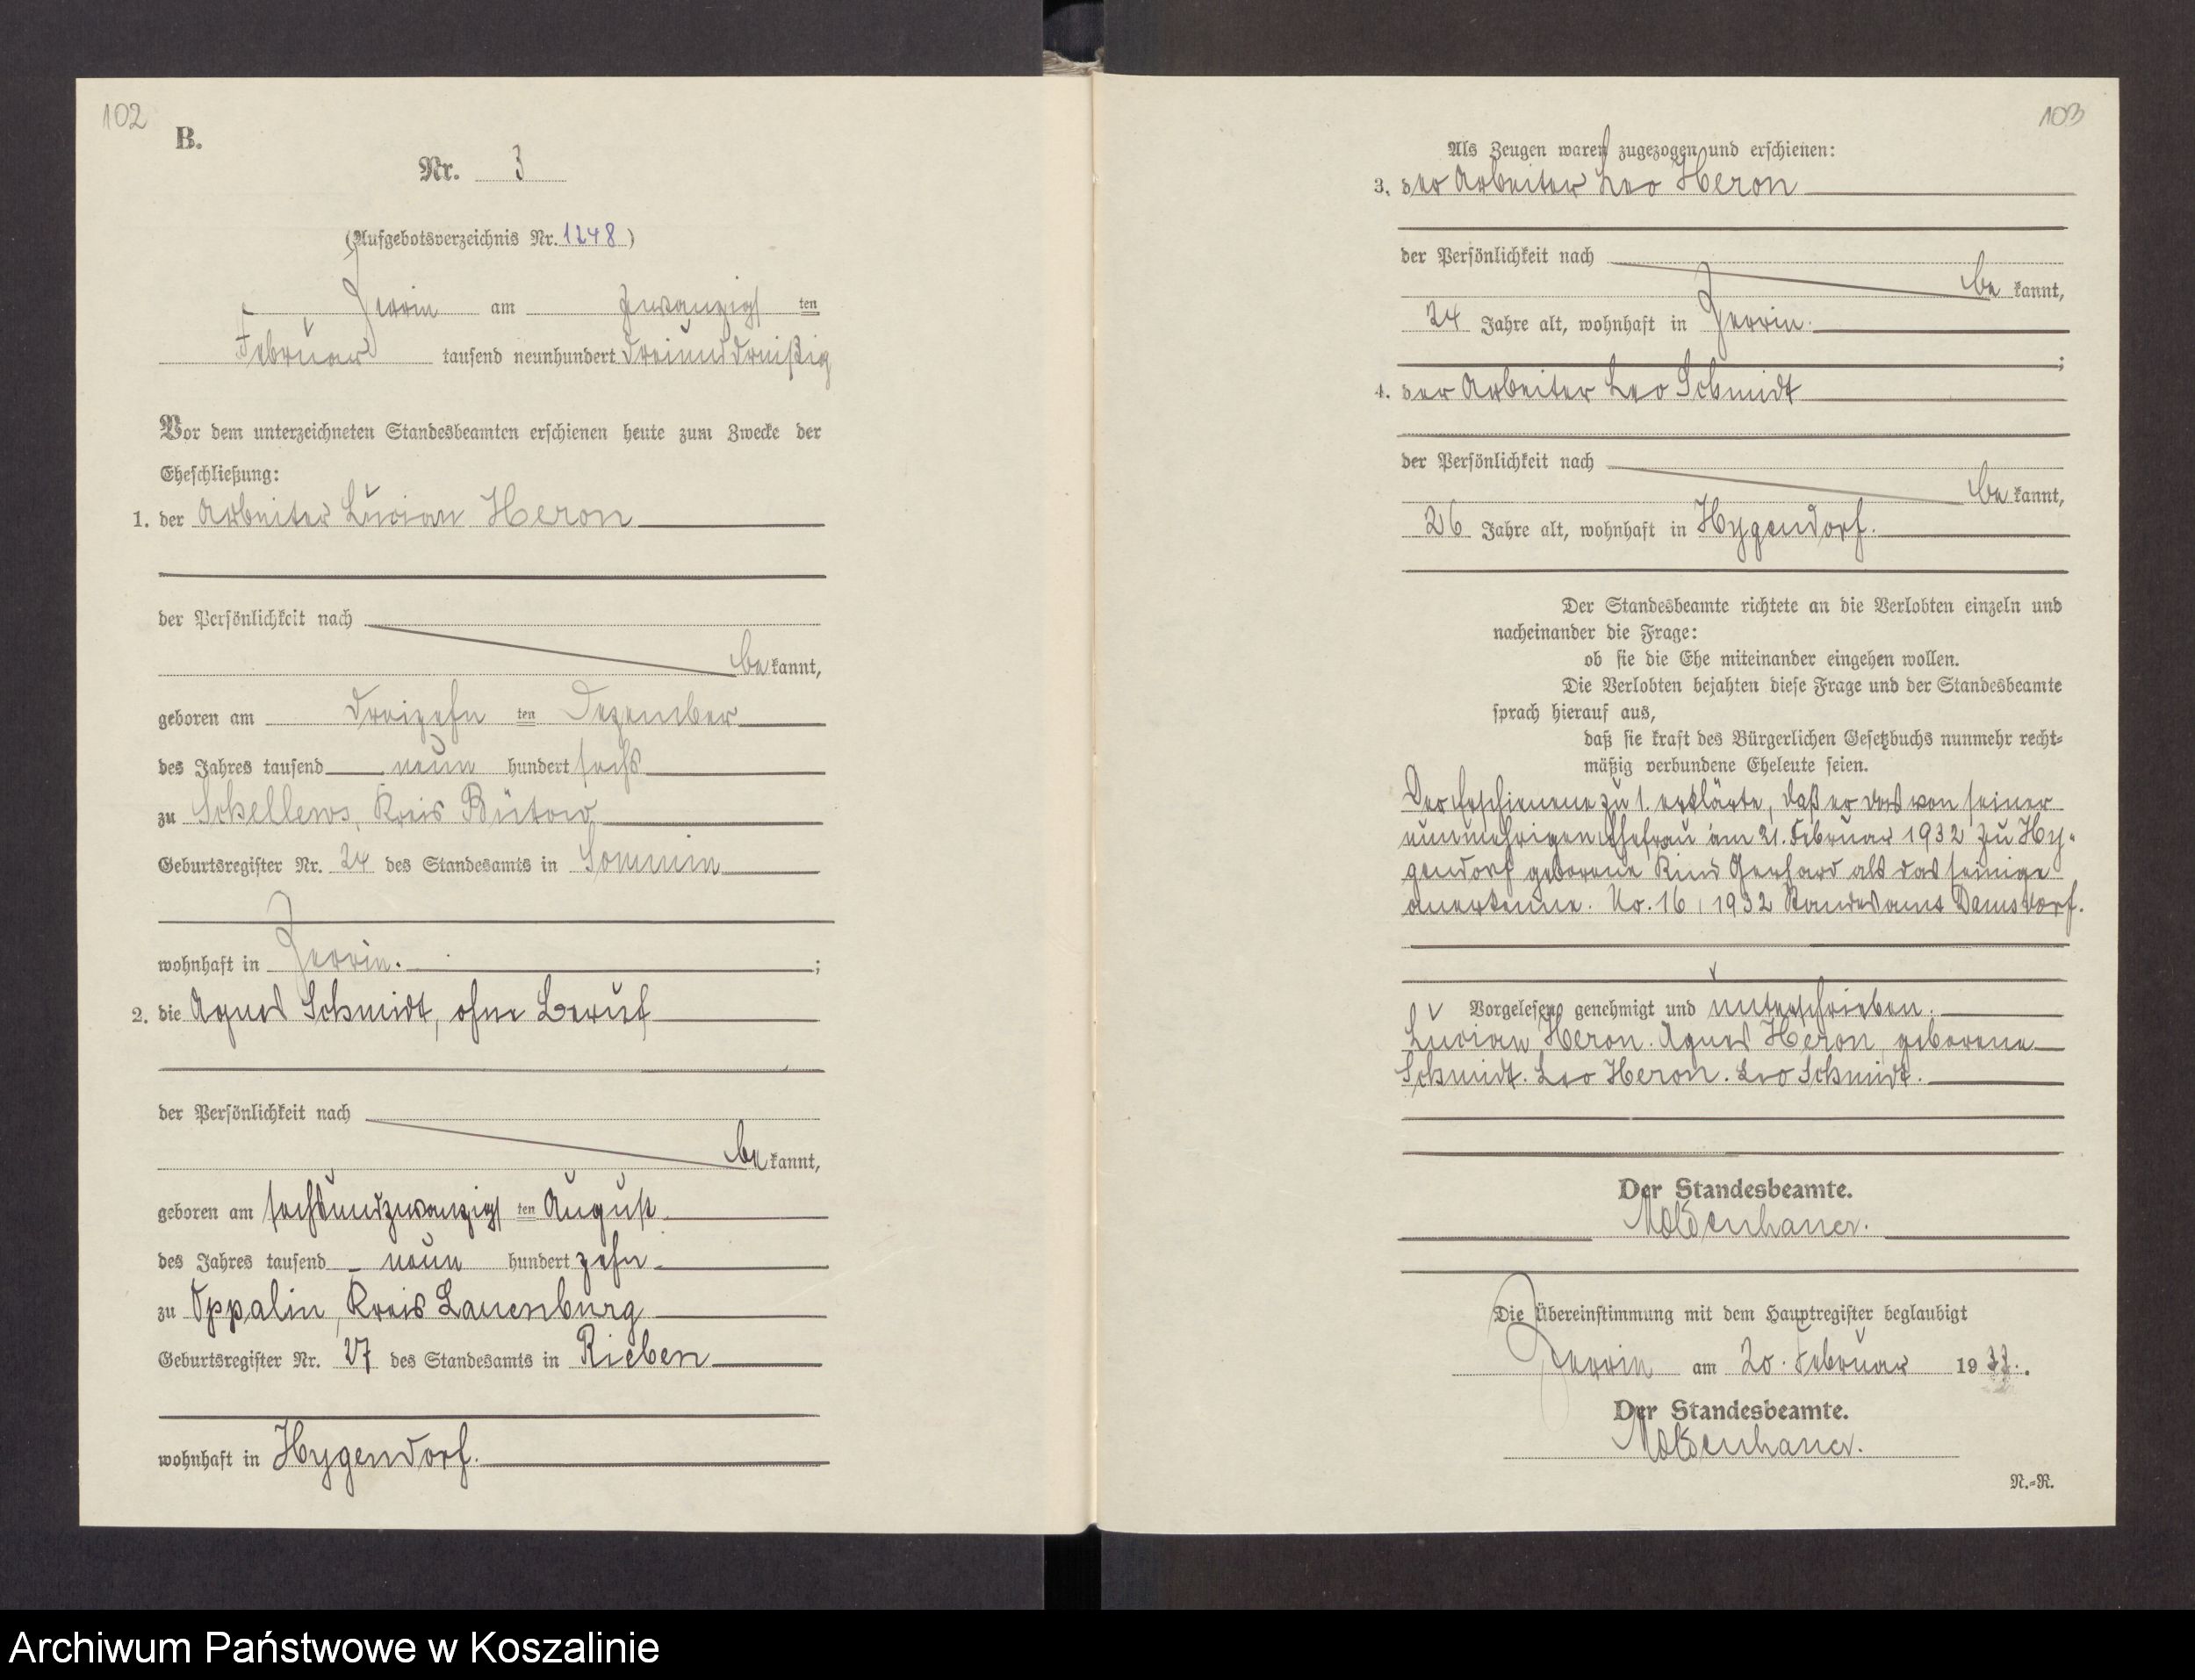 102
B.
Nr. 3
(Aufgebotsverzeichnis Nr. 1248)
Zerrin am zwanzigs ten
Februar tausend neunhundert dreiunddreißig
Vor dem unterzeichneten Standesbeamten erschienen heute zum Zwecke der
Eheschließung:
1. der Arbeiter Lucian Heron
der Persönlichkeit nach
be kannt,
geboren am dreizehn ten Dezember
des Jahres tausend neun hundert sechs
zu , Kreis Bütow
Geburtsregister Nr. 24 des Standesamts in Sommin
wohnhaft in Zerrin. ;
2. die Agnes Schmidt, ohne Beruf
der Persönlichkeit nach
be kannt,
geboren am sechsundzwanzigs ten August
des Jahres tausend neun hundert zehn
zu Oppalin, Kreis Lauenburg
Geburtsregister Nr. 27 des Standesamts in Rieben
wohnhaft in Hygendorf.
103
Als Zeugen waren zugezogen und erschienen:
3. der Arbeiter Leo Heron
der Persönlichkeit nach
be kannt,
24 Jahre alt, wohnhaft in Zerrin.
;
4. der Arbeiter Leo Schmidt
der Persönlichkeit nach
be kannt,
26 Jahre alt, wohnhaft in Hygendorf.
Der Standesbeamte richtete an die Verlobten einzeln und
nacheinander die Frage:
ob sie die Ehe miteinander eingehen wollen.
Die Verlobten bejahten diese Frage und der Standesbeamte
sprach hierauf aus,
daß sie kraft des Bürgerlichen Gesetzbuchs nunmehr recht-
mäßig verbundene Eheleute seien.
Der Erschienene zu 1. erklärte, daß er das von seiner
nunmehrigen Ehefrau am 21. Februar 1932 zu Hy-
gendorf geborene Kind Gerhard als das seinige
anerkenne. No. 16, 1932 Standesamt Damsdorf.
Vorgelesen, genehmigt und unterschrieben.
Lucian Heron. Agnes Heron, geborene
Schmidt. Leo Heron. Leo Schmidt.
Der Standesbeamte.
Moldenhauer.
Die Übereinstimmung mit dem Hauptregister beglaubigt
Zerrin am 20. Februar 19 33.
Der Standesbeamte.
Moldenhauer.
N.-R.
Archiwum Państwowe w Koszalinie